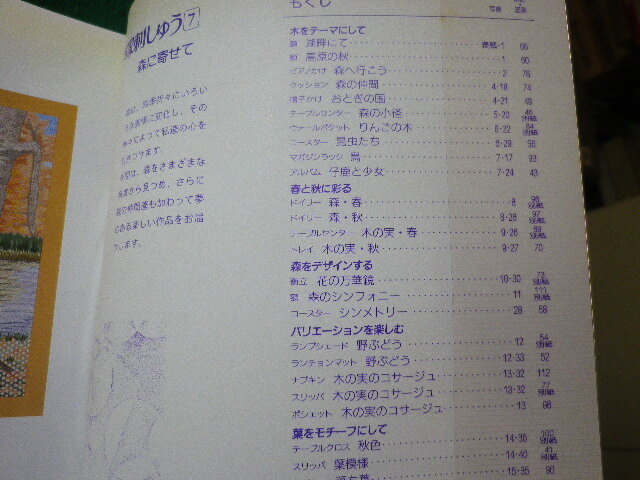 刺しゅう 7
森に寄せて
森は、四季折々にいろい
ろな表情に変化し、その
時々によって私達の心を
ひきつけます。
今回は、森をさまざまな
角度から見つめ、さらに
森の仲間達も加わって夢
のある楽しい作品をお届
けします。
もくじ
木をテーマにして
額 湖畔にて 表紙・1 66
額 高原の秋 1 60
ピアノかけ 森へ行こう 2 78
クッション 森の仲間 4・18 74
帽子かけ おとぎの国 4・21 48
テーブルセンター 森の小径 6・20 46 別紙
ウォールポケット りんごの木 6・22 84 別紙
コースター 昆虫たち 6・29 56
マガジンラック 鳥 7・17 93
アルバム 仔鹿と少女 7・24 43
春と秋に彩る
ドイリー 森・春 8 96 別紙
ドイリー 森・秋 8・26 97 別紙
テーブルセンター 木の実・春 9・26 69 別紙
トレイ 木の実・秋 9・27 70
森をデザインする
衝立 花の万華鏡 10・30 73 別紙
額 森のシンフォニー 11 111 別紙
コースター シンメトリー 28 58
バリエーションを楽しむ
ランプシェード 野ぶどう 12 54 別紙
ランチョンマット 野ぶどう 12・33 52
ナプキン 木の実のコサージュ 13・32 112
スリッパ 木の実のコサージュ 13・32 77 別紙
ポシェット 木の実のコサージュ 13 98
葉をモチーフにして
テーブルクロス 秋色 14・36 100 別紙
スリッパ 葉模様 14・40 41 別紙
15・35 90